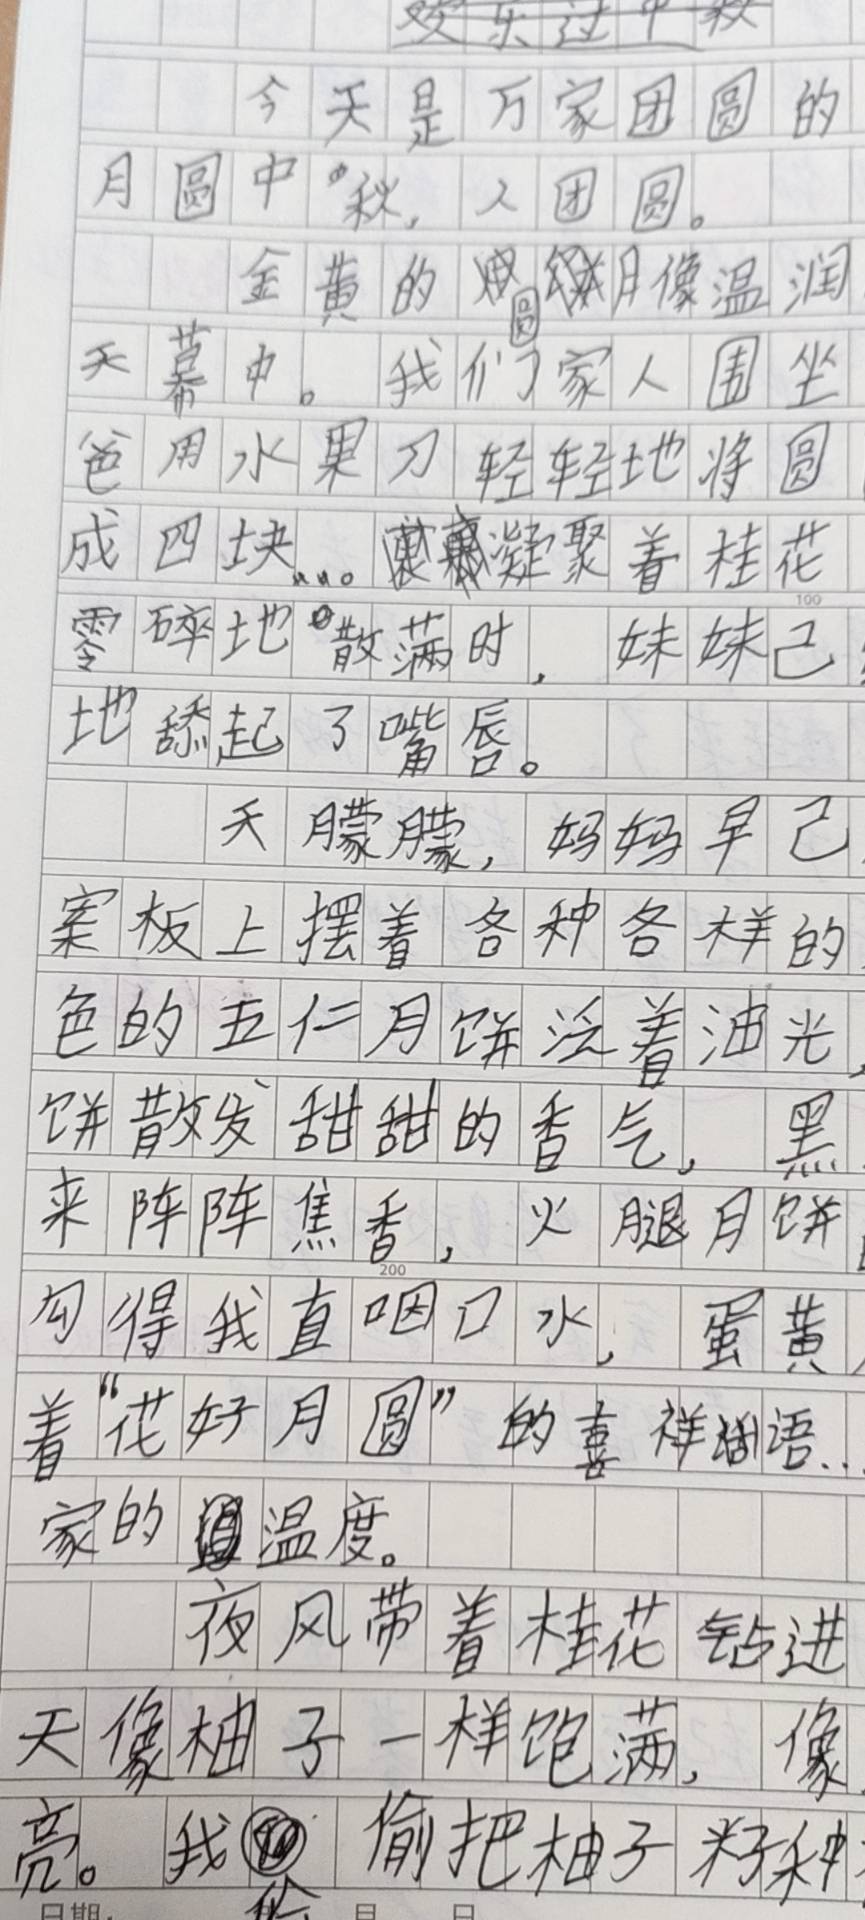 欢乐过中秋
今天是万家团圆的
月圆中秋，人团圆。
金黄的圆月像温润
天幕中。我们家人围坐
爸用水果刀轻轻地将圆
成四块…。凝聚着桂花
100
零碎地散满时，妹妹己
地舔起了嘴唇。
天朦朦，妈妈早己
案板上摆着各种各样的
色的五仁月饼泛着油光，
饼散发甜甜的香气，黑
来阵阵焦香，火腿月饼
200
勾得我直咽口水，蛋黄
着“花好月圆”的喜祥语…
家的温度。
夜风带着桂花钻进
天像柚子一样饱满，像
亮。我偷偷把柚子籽种
日期： 月 日